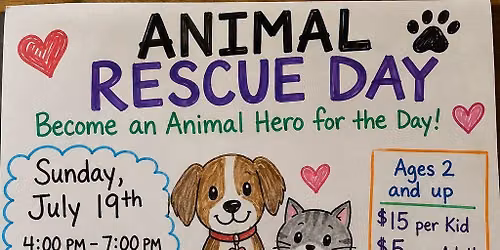 ANIMAL
RESCUE DAY
Become an Animal Hero for the Day!
Sunday,
July 19th
4:00 PM – 7:00 PM
Ages 2
and up
$15 per Kid
$5